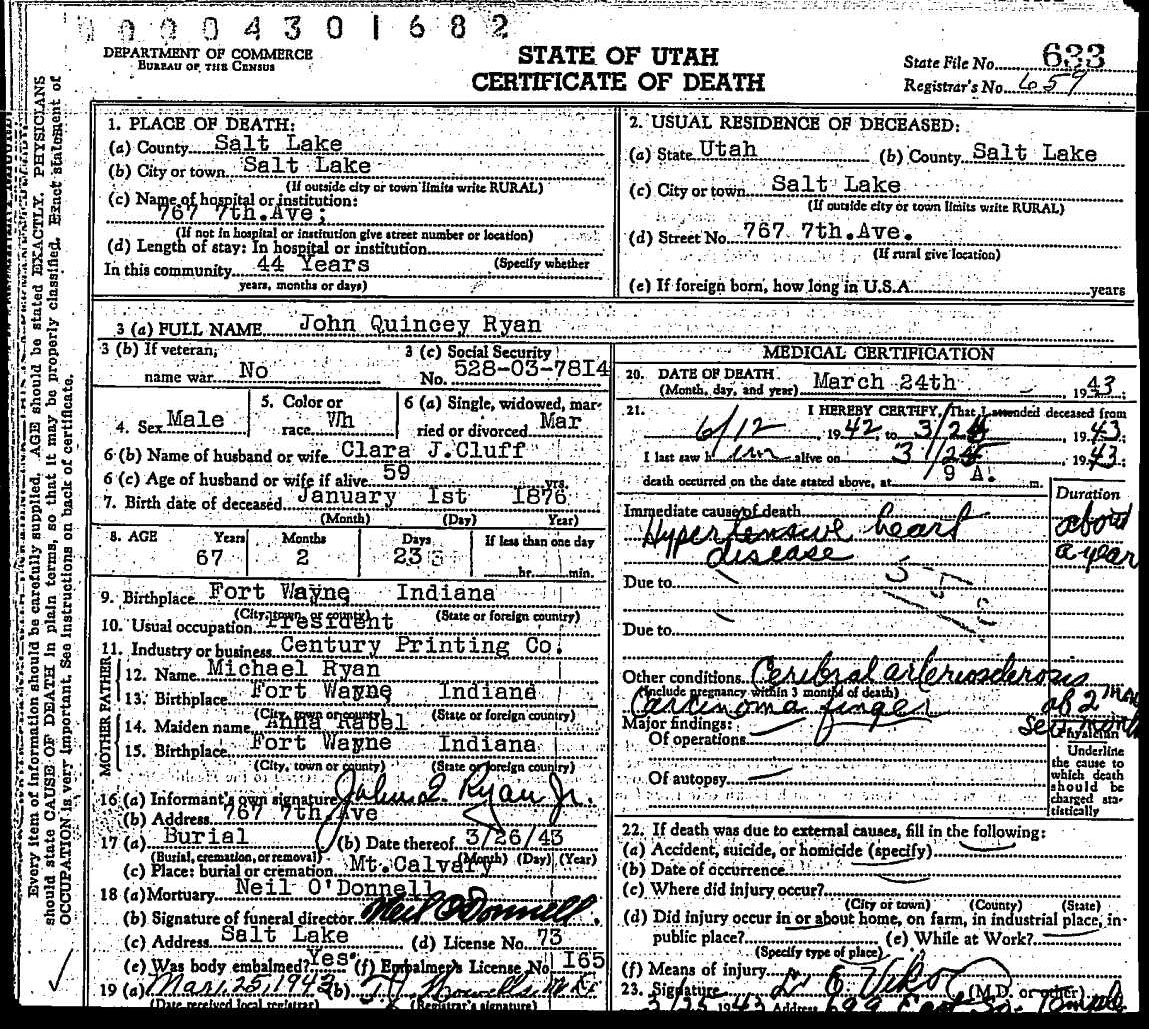 00004301682
DEPARTMENT OF COMMERCE
BUREAU OF THE CENSUS
STATE OF UTAH
CERTIFICATE OF DEATH
State File No. 633
Registrar's No. 659
Every item of information should be carefully supplied. AGE should be stated EXACTLY. PHYSICIANS
should state CAUSE OF DEATH in plain terms, so that it may be properly classified. Exact statement of
OCCUPATION is very important. See instructions on back of certificate.
1. PLACE OF DEATH:
(a) County Salt Lake
(b) City or town Salt Lake
(If outside city or town limits write RURAL)
(c) Name of hospital or institution:
767 7th.Ave;
(If not in hospital or institution give street number or location)
(d) Length of stay: In hospital or institution
In this community 44 Years (Specify whether
years, months or days)
2. USUAL RESIDENCE OF DECEASED:
(a) State Utah (b) County Salt Lake
(c) City or town Salt Lake
(If outside city or town limits write RURAL)
(d) Street No. 767 7th.Ave.
(If rural give location)
(e) If foreign born, how long in U.S.A. years
3 (a) FULL NAME John Quincey Ryan
3 (b) If veteran,
name war No
3 (c) Social Security
No. 528-03-7814
4. Sex Male
5. Color or
race Wh
6 (a) Single, widowed, mar-
ried or divorced Mar
6 (b) Name of husband or wife Clara J.Cluff
6 (c) Age of husband or wife if alive 59 yrs.
7. Birth date of deceased January 1st 1876
(Month) (Day) Year)
8. AGE Years Months Days If less than one day
67 2 23 hr. min.
9. Birthplace Fort Wayne Indiana
(City, town, or county) (State or foreign country)
10. Usual occupation President
11. Industry or business Century Printing Co.
FATHER
12. Name Michael Ryan
13. Birthplace Fort Wayne Indiana
(City, town or county) (State or foreign country)
MOTHER
14. Maiden name Anna Rabel
15. Birthplace Fort Wayne Indiana
(City, town or county) (State or foreign country)
16 (a) Informant's own signature John Q. Ryan Jr.
(b) Address 767 7th.Ave
17 (a) Burial (b) Date thereof 3/26/43
(Burial, cremation, or removal) (Month) (Day) (Year)
(c) Place: burial or cremation Mt.Calvary
18 (a) Mortuary Neil O'Donnell
(b) Signature of funeral director Neil O'Donnell
(c) Address Salt Lake (d) License No. 73
(e) Was body embalmed? Yes (f) Embalmer's License No. 165
19 (a) Mar. 25, 1943 (b)
(Date received local registrar) (Registrar's signature)
MEDICAL CERTIFICATION
20. DATE OF DEATH
(Month, day, and year) March 24th 1943;
21. I HEREBY CERTIFY, That I attended deceased from
6/12, 1942, to 3/24 1943;
I last saw him alive on 3/24 1943;
death occurred on the date stated above, at 9 A. m.
Duration
Immediate cause of death
Hypertensive heart about
disease a year
Due to
Due to
Other conditions Cerebral arteriosclerosis
(Include pregnancy within 3 months of death)
Carcinoma finger
Major findings:
Of operations
Of autopsy
Physician
Underline
the cause to
which death
should be
charged sta-
tistically
22. If death was due to external causes, fill in the following:
(a) Accident, suicide, or homicide (specify)
(b) Date of occurrence
(c) Where did injury occur?
(City or town) (County) (State)
(d) Did injury occur in or about home, on farm, in industrial place, in-
public place? (e) While at Work?
(Specify type of place)
(f) Means of injury
23. Signature L. E. Viko (M.D. or other)
3/25 1943 Address 699 East So. Temple